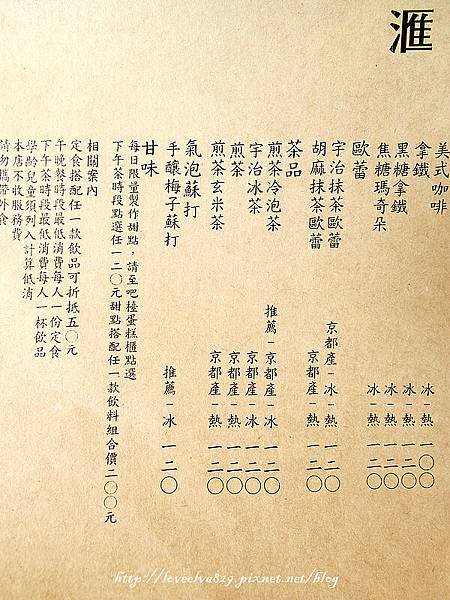 滙
美式咖啡 冰-熱 一〇〇
拿鐵 冰-熱 一二〇
黑糖拿鐵 冰-熱 一二〇
焦糖瑪奇朵 冰-熱 一二〇
歐蕾
宇治抹茶歐蕾 京都產-冰-熱 一二〇
胡麻抹茶歐蕾 京都產-熱 一二〇
茶品
煎茶冷泡茶 推薦-京都產-冰 一二〇
宇治冰茶 京都產-冰 一二〇
煎茶 京都產-熱 一二〇
煎茶玄米茶 京都產-熱 一二〇
氣泡蘇打
手釀梅子蘇打 推薦-冰 一二〇
甘味
每日限量製作甜點，請至吧檯蛋糕櫃點選
下午茶時段點選任一二〇元甜點搭配任一款飲料組合價二〇〇元
相關案內
定食搭配任一款飲品可折抵五〇元
午晚餐時段最低消費每人一份定食
下午茶時段最低消費每人一杯飲品
學齡兒童須列入計算低消
本店不收服務費
請勿攜帶外食
http://loveelva829.pixnet.net/blog